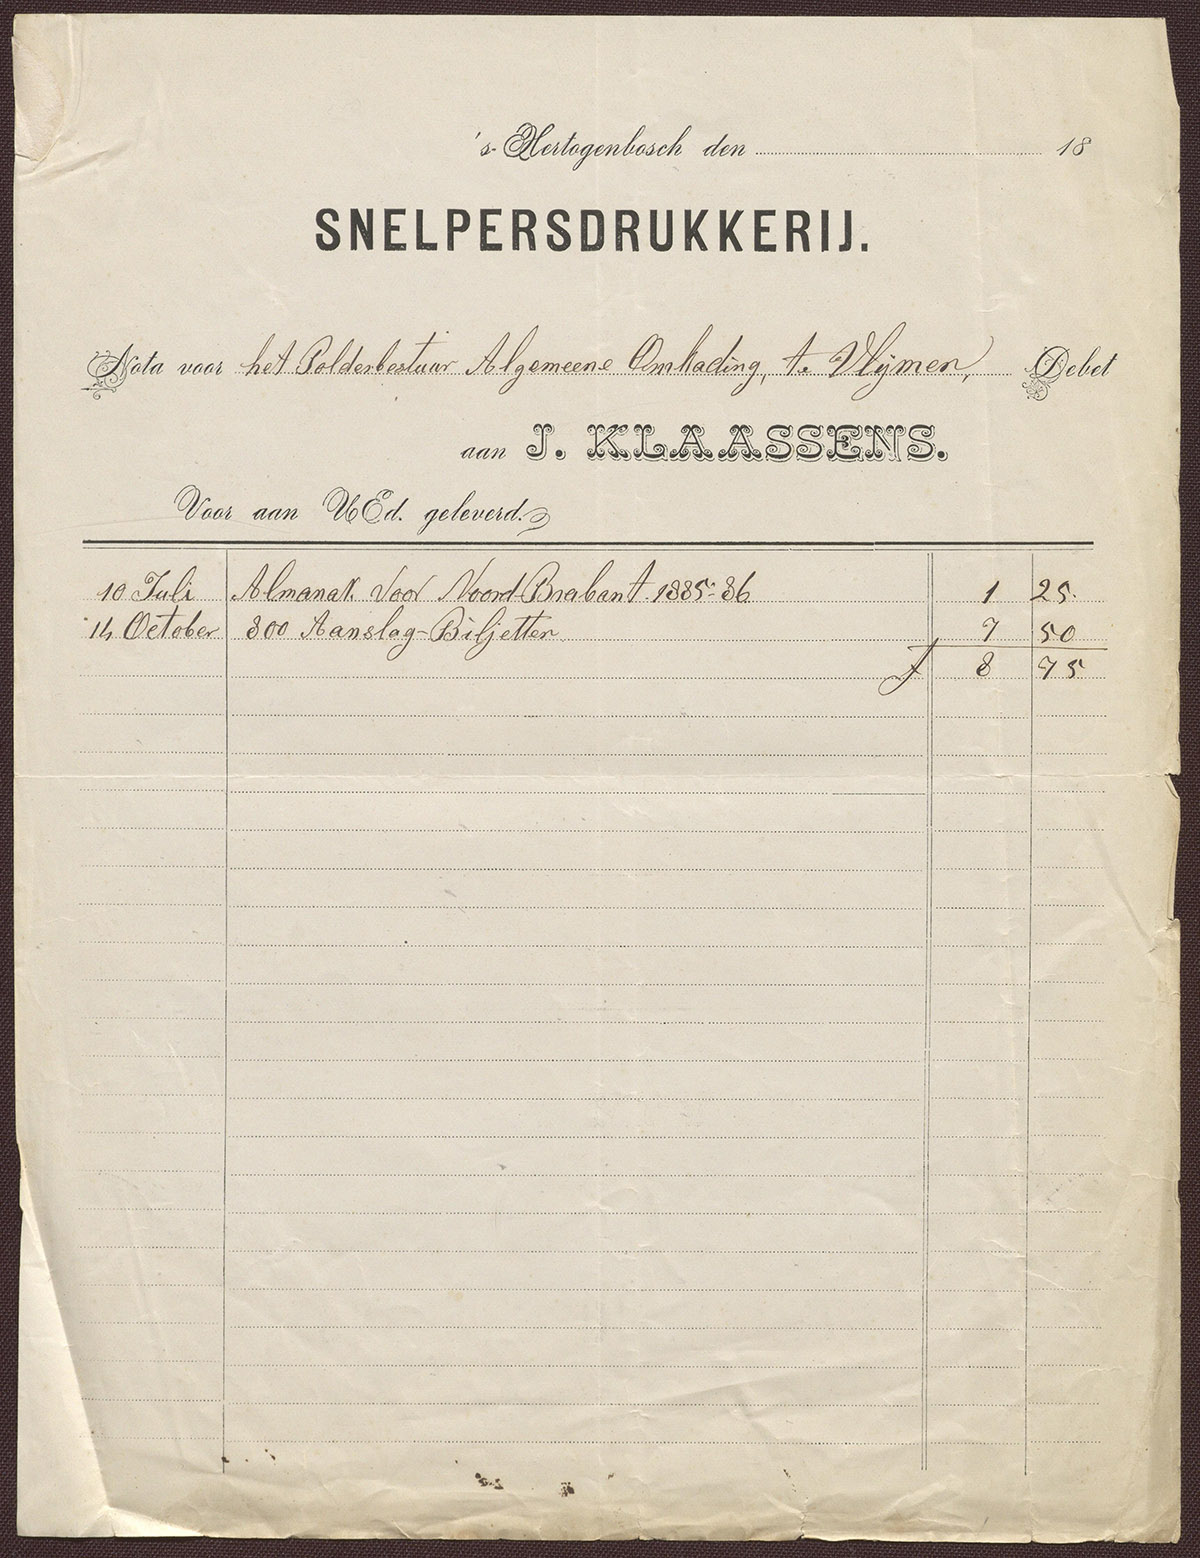 's-Hertogenbosch den 18
SNELPERSDRUKKERIJ.
Nota voor het Polderbestuur Algemeene Omkading, te Vlijmen, Debet
aan J. KLAASSENS.
Voor aan UEd. geleverd.
10 Juli Almanak voor Noord-Brabant 1885-86 1 25
14 October 800 Aanslag-Biljetten 7 50
f 8 75